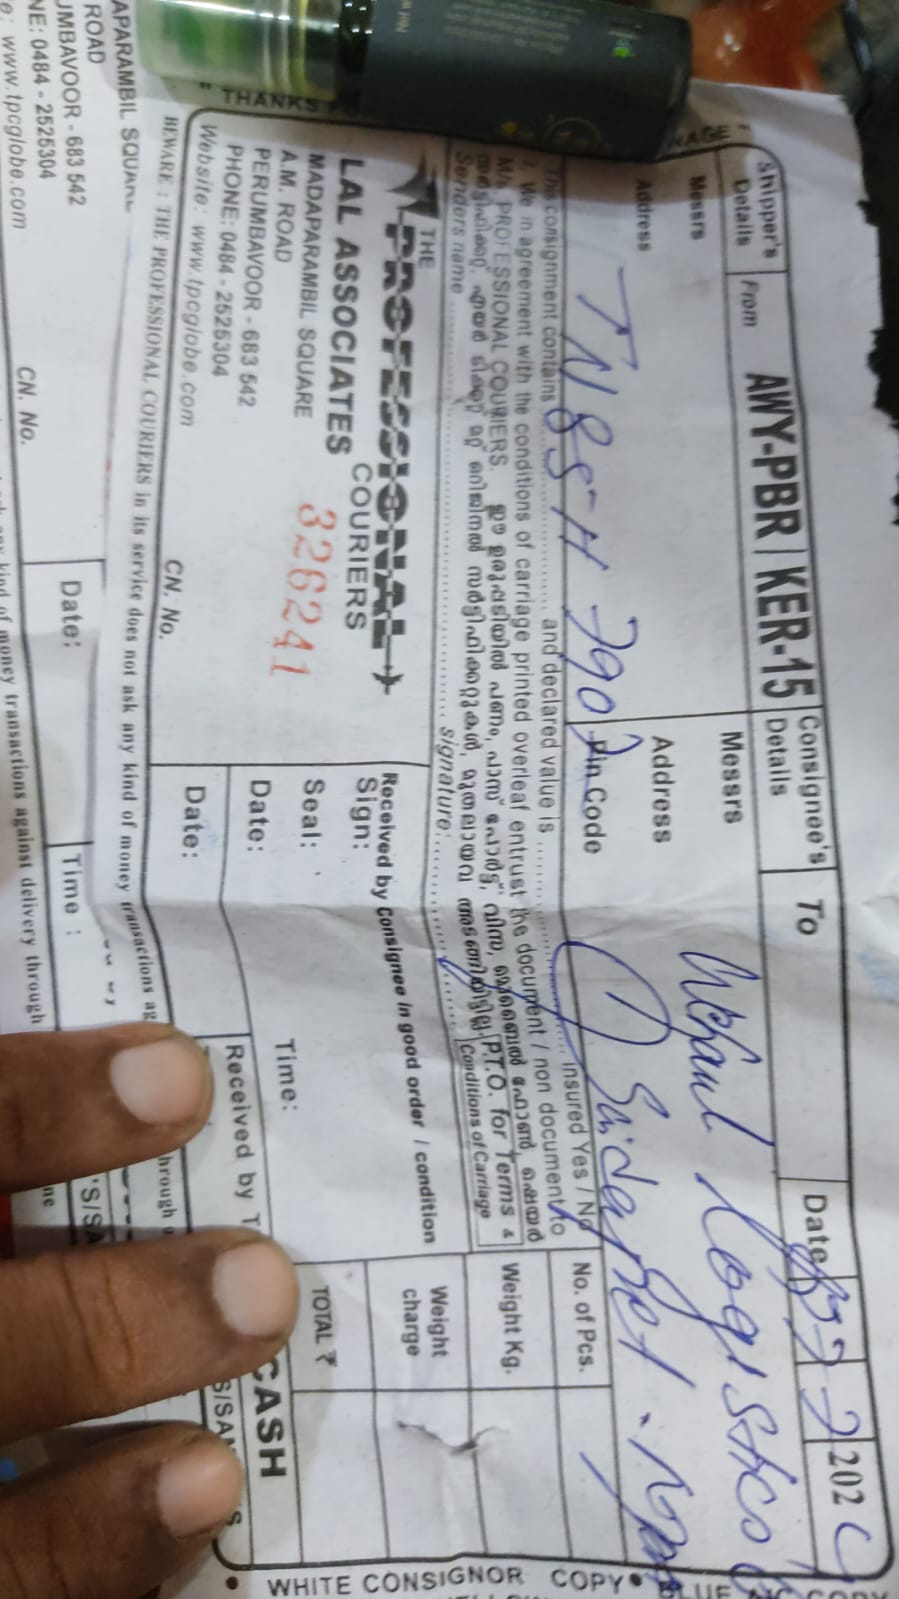 Shipper's Details From AWY-PBR | KER-15 Consignee's Details To Date 202
Messrs
Address
TN 85 H 7907
Messrs Logistics
Address
Pin Code Saidapet
This consignment contains and declared value is insured Yes / No
We in agreement with the conditions of carriage printed overleaf entrust the document / non document to
M/s. PROFESSIONAL COURIERS. ഈ ഉരുപ്പടിയിൽ പണം, പാസ് പോർട്ട്, വിസ, മൊബൈൽ ഫോൺ, ഷെയർ
സർട്ടിഫിക്കറ്റ്, എയർ ടിക്കറ്റ് മറ്റ് ഒറിജിനൽ സർട്ടിഫിക്കറ്റുകൾ, മുതലായവ അടങ്ങിയിട്ടില്ല.
P.T.O. for Terms &
Conditions of Carriage
Senders name signature:
No. of Pcs.
Weight Kg.
Weight charge
TOTAL ₹
CASH
THE
PROFESSIONAL
COURIERS
LAL ASSOCIATES
326241
MADAPARAMBIL SQUARE
A.M. ROAD
PERUMBAVOOR - 683 542
PHONE: 0484 - 2525304
Website: www.tpcglobe.com
CN. No.
Received by Consignee in good order / condition
Sign:
Seal:
Date: Time:
Date:
Received by
BEWARE : THE PROFESSIONAL COURIERS in its service does not ask any kind of money transactions
WHITE CONSIGNOR COPY
THANKS
APARAMBIL SQUARE
ROAD
UMBAVOOR - 683 542
NE: 0484 - 2525304
e: www.tpcglobe.com
CN. No.
Date: Time :
any kind of money transactions against delivery through